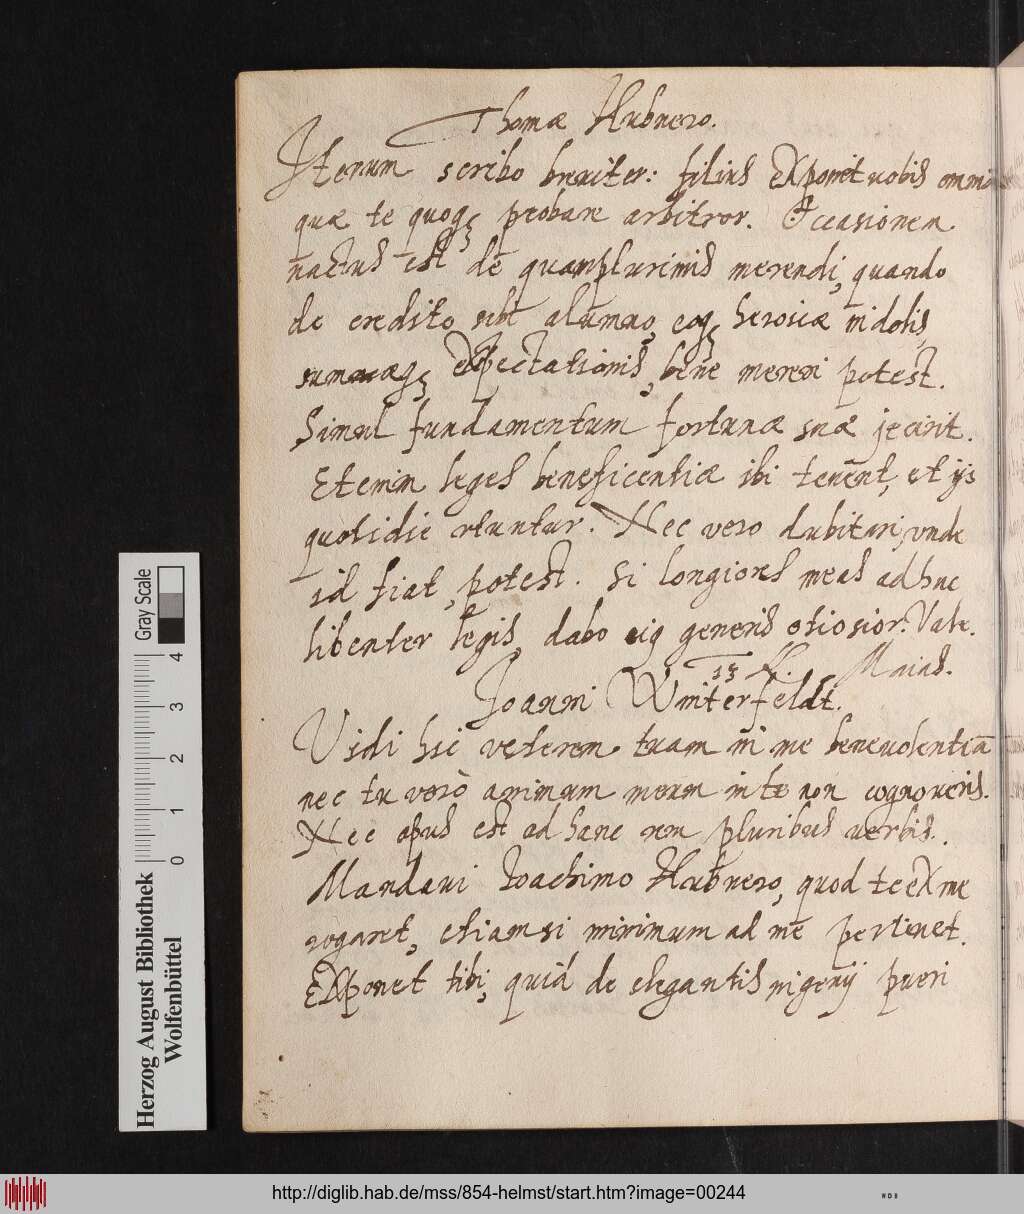 Thomæ Hubnero.
Iterum scribo breviter: filius exponet vobis omnia
quæ te quoq; probare arbitror. Occasionem
nactus est de quamplurimis merendi, quando
de credito sibi alumno, eoq; heroicæ indolis,
summæq; expectationis, bene mereri potest.
Simul fundamentum fortunæ suæ jecirit.
Etenim leges beneficentiæ ibi tenent, et ijs
quotidie utuntur. Nec vero dubitari, unde
id fiat, potest. Si longiores meas adhuc
libenter legis, dabo eig generis otiosior. Vale.
13 Maias.
Joanni Winterfeldt.
Vidi hic veterem tuam in me benevolentiā
nec tu verò animum meum in te non cognoveris.
Nec opus est ad hanc rem pluribus verbis.
Mandavi Joachimo Hubnero, quod te ex me
rogaret, etiamsi minimum ad me pertinet.
Exponet tibi, quid de elegantis ingenij pueri
Gray Scale
0 1 2 3 4
Herzog August Bibliothek
Wolfenbüttel
http://diglib.hab.de/mss/854-helmst/start.htm?image=00244